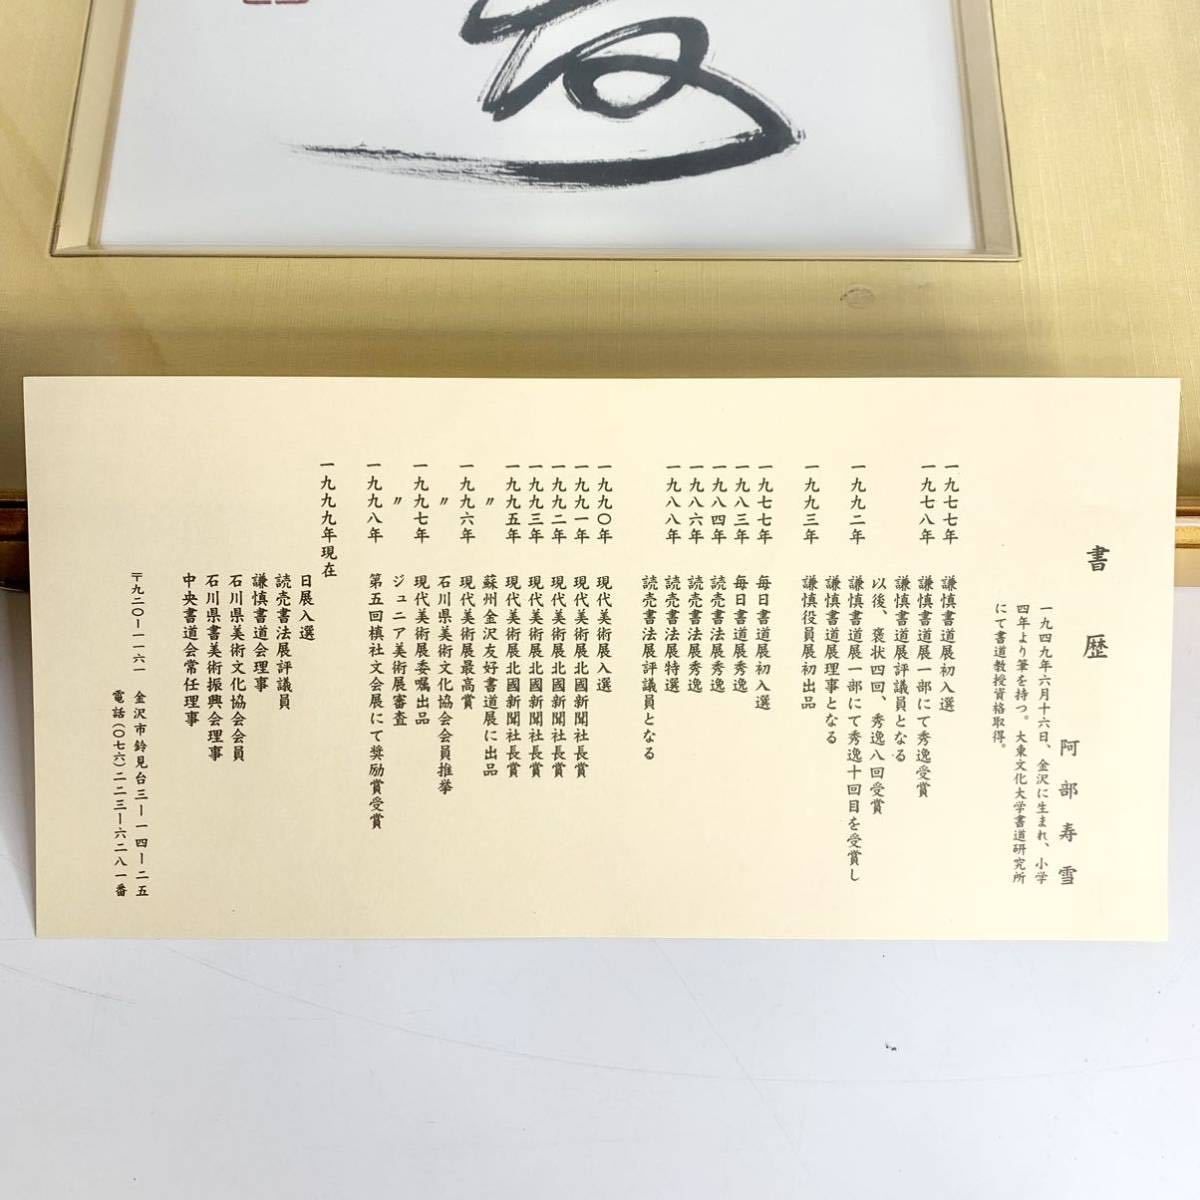 書歴
阿部寿雪
一九四九年六月十六日、金沢に生まれ、小学
四年より筆を持つ。大東文化大学書道研究所
にて書道教授資格取得。
一九七七年　謙慎書道展初入選
一九七八年　謙慎書道展一部にて秀逸受賞
謙慎書道展評議員となる
以後、褒状四回、秀逸八回受賞
一九九二年　謙慎書道展一部にて秀逸十回目を受賞し
謙慎書道展理事となる
一九九三年　謙慎役員展初出品
一九七七年　毎日書道展初入選
一九八三年　毎日書道展秀逸
一九八四年　読売書法展秀逸
一九八六年　読売書法展秀逸
一九八八年　読売書法展特選
読売書法展評議員となる
一九九〇年　現代美術展入選
一九九一年　現代美術展北國新聞社長賞
一九九二年　現代美術展北國新聞社長賞
一九九三年　現代美術展北國新聞社長賞
一九九五年　現代美術展北國新聞社長賞
〃　蘇州金沢友好書道展に出品
一九九六年　現代美術展最高賞
〃　石川県美術文化協会会員推挙
一九九七年　現代美術展委嘱出品
〃　ジュニア美術展審査
一九九八年　第五回槙社文会展にて奨励賞受賞
一九九九年現在
日展入選
読売書法展評議員
謙慎書道会理事
石川県美術文化協会会員
石川県書美術振興会理事
中央書道会常任理事
〒九二〇―一一六一　金沢市鈴見台三―一四―二五
電話(〇七六)二二三―六二八一番